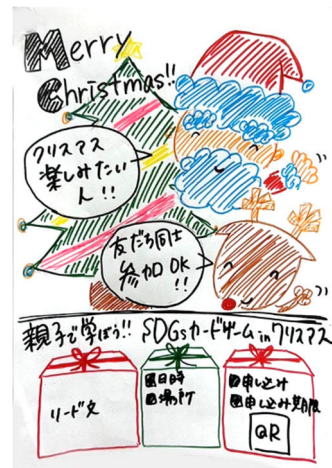 Merry
Christmas!!
クリスマス
楽しみたい
人!!
友だち同士
参加OK
!!
親子で学ぼう!! SDGsカードゲームinクリスマス
リード文
日時
場所
申し込み
申し込み期限
QR